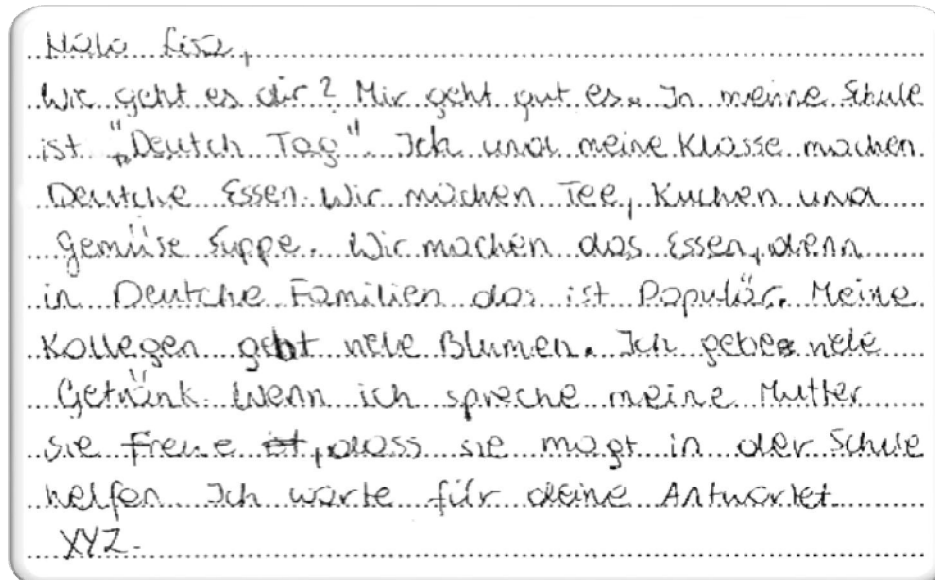 Halo Lisa,
Wie geht es dir? Mir geht gut es. In meine Schule
ist "Deutch Tag". Ich und meine Klasse machen
Deutche Essen. Wir machen Tee, Kuchen und
Gemüse Suppe. Wir machen das Essen, denn
in Deutche Familien das ist Populär. Meine
Kollegen geht viele Blumen. Ich gebe viele
Getränk. Wenn ich spreche meine Mutter
sie freue, dass sie magt in der Schule
helfen. Ich warte für deine Antwortet
XYZ.